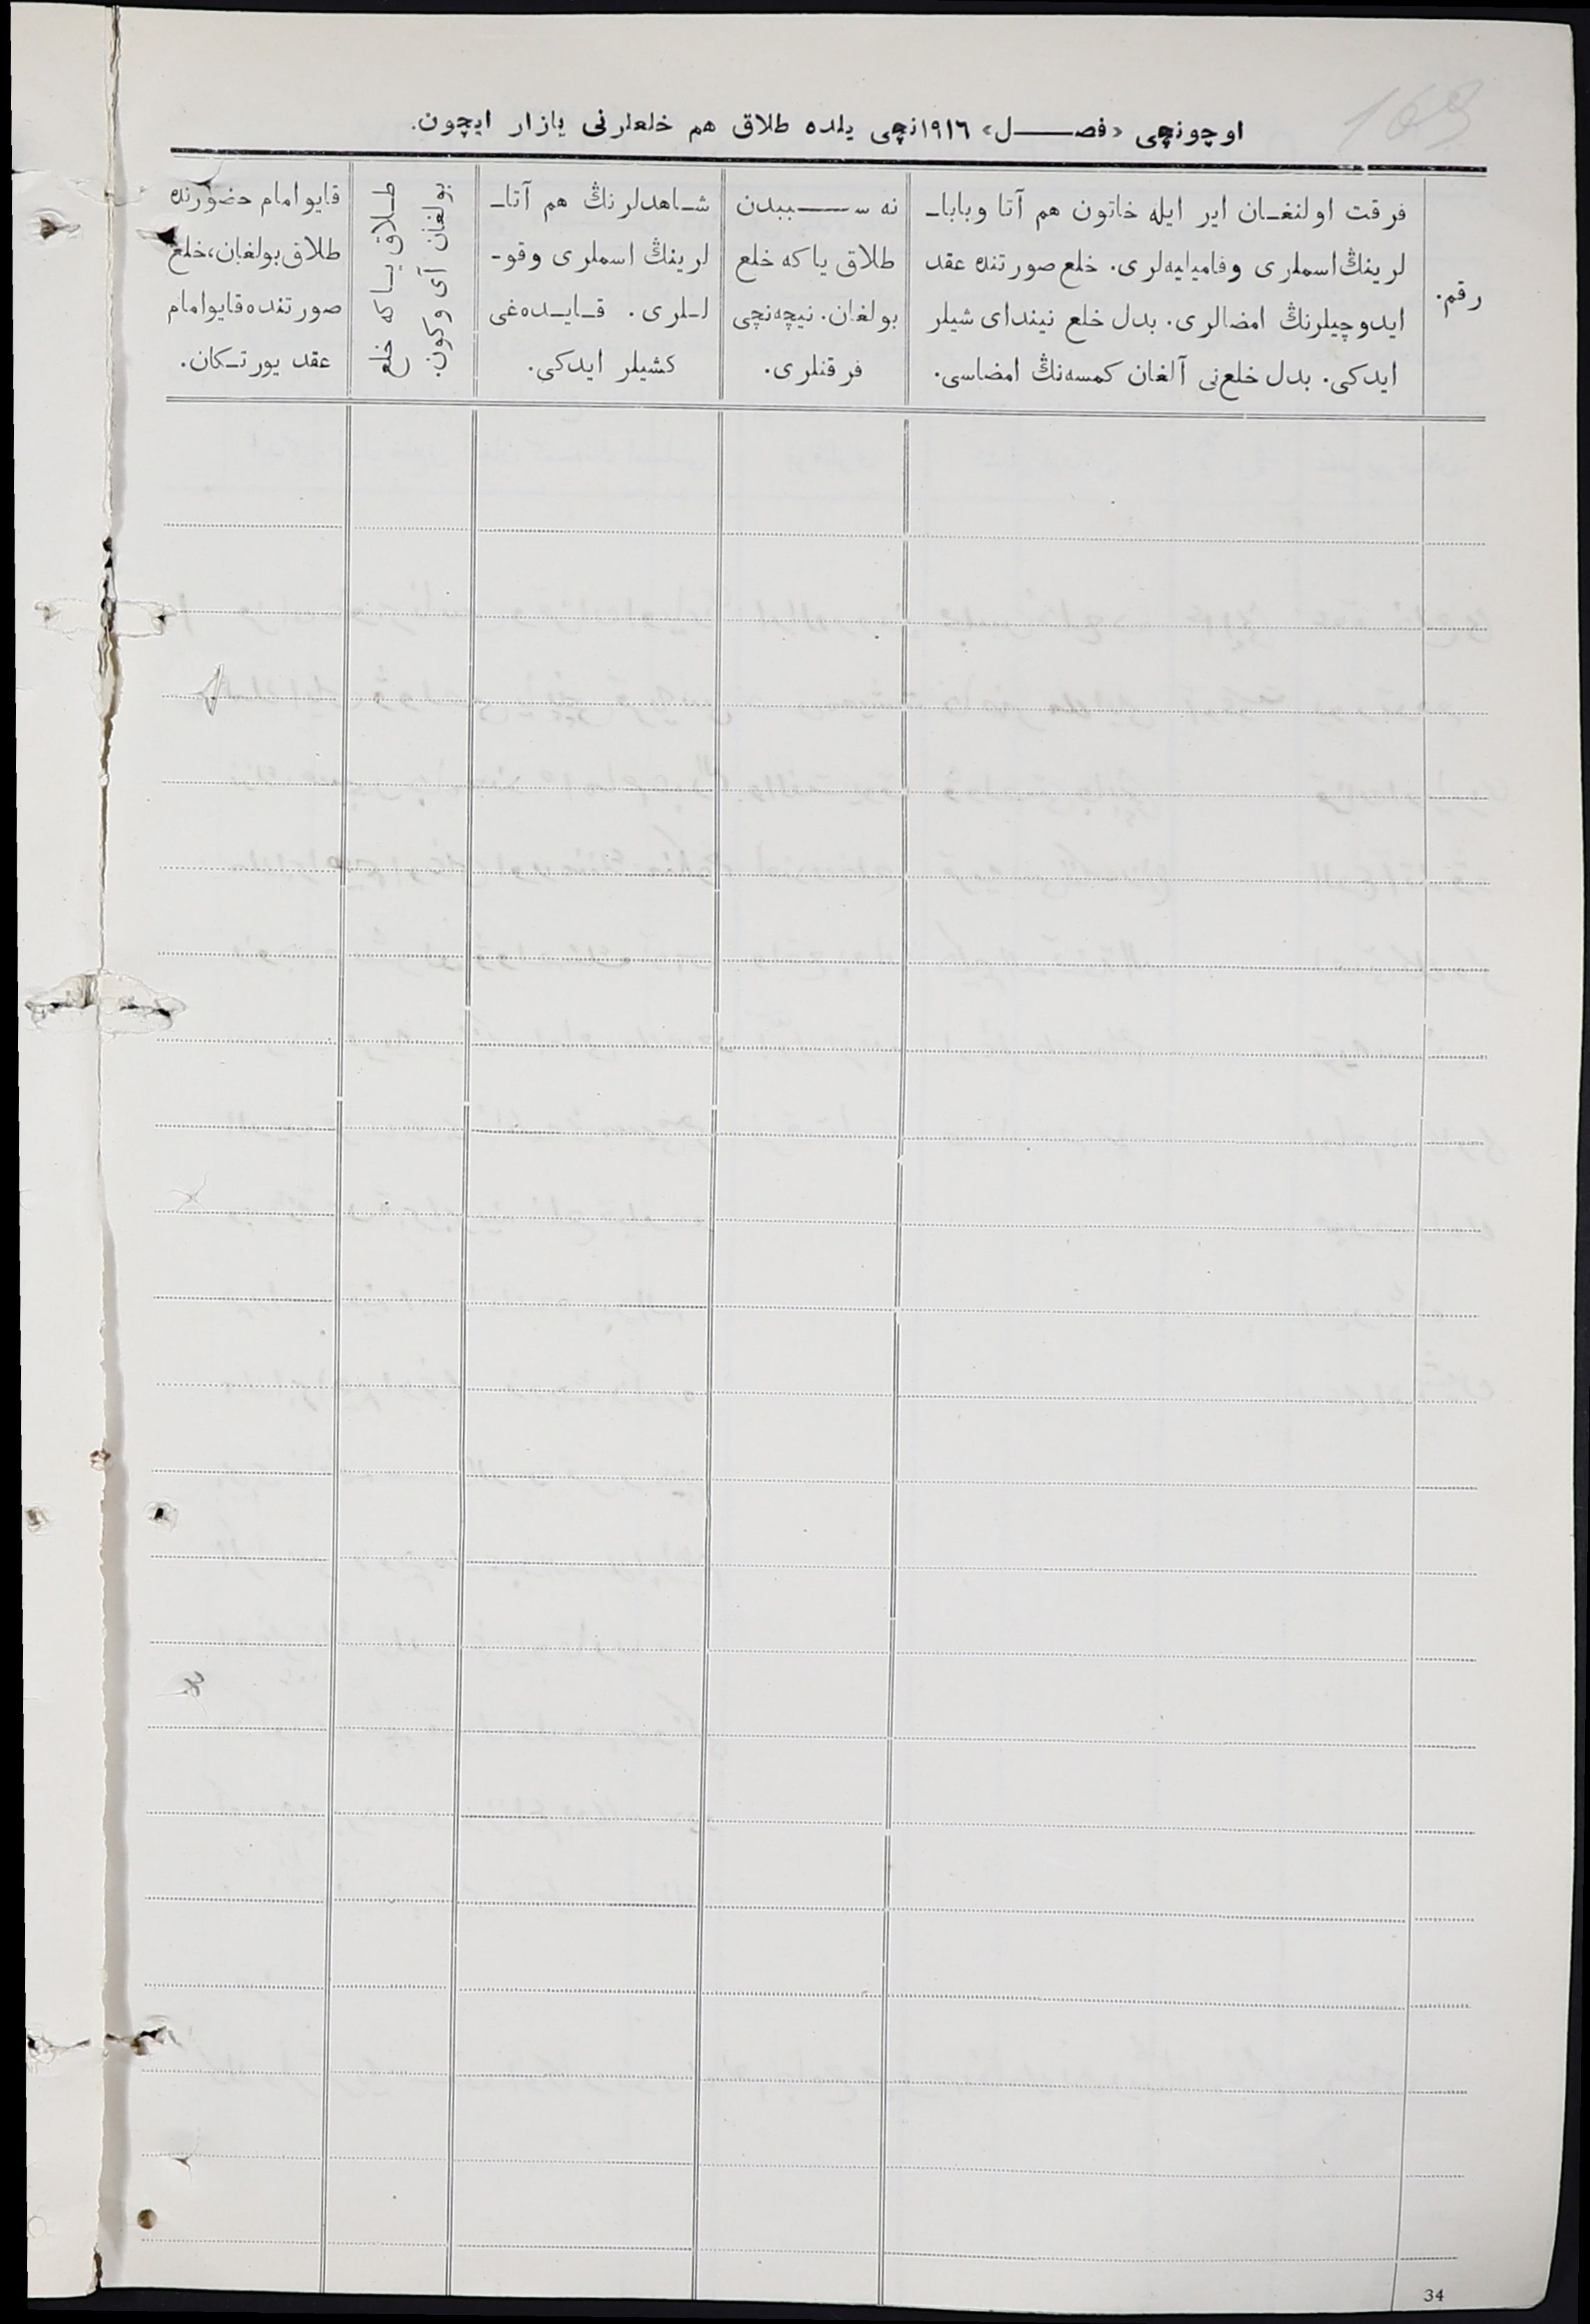 163
اوچونچی «فصـــل» ١٩١٦نچی یلده طلاق هم خلعلرنی یازار ایچون.
رقم.
فرقت اولنغـان ایر ایله خاتون هم آتا وبابا-
لرینڭ اسملری وفامیلیه‌لری. خلع صورتنده عقد
ایدوچیلرنڭ امضالری. بدل خلع نیندای شیلر
ایدکی. بدل خلع‌نی آلغان کمسه‌نڭ امضاسی.
نه ســـببدن
طلاق یا که خلع
بولغان. نیچه‌نچی
فرقتلری.
شـاهدلرنڭ هم آتا-
لرینڭ اسملری وقو-
لـلری. قـایـده‌غی
کشیلر ایدکی.
طـلاق یـا که خلع
بولغان آی وکون.
قایو امام حضورنده
طلاق بولغان، خلع
صورتنده قایو امام
عقد یورتـکان.
34